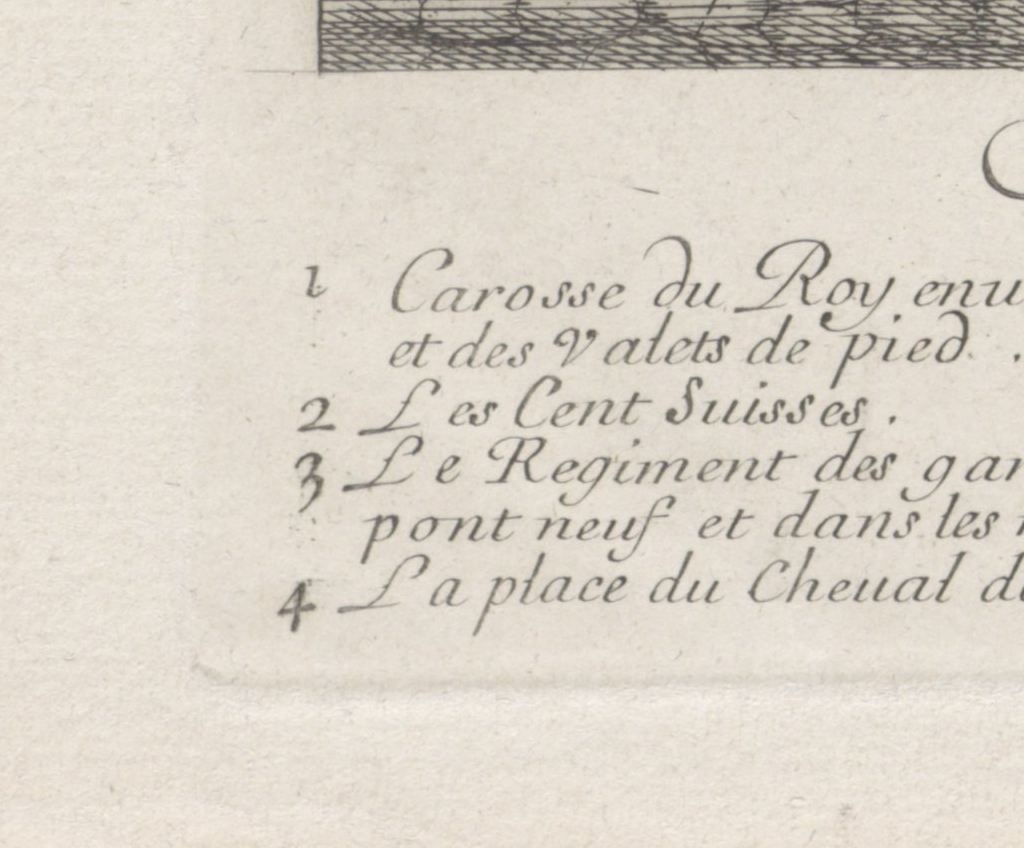 1 Carosse du Roy enu
et des Valets de pied .
2 Les Cent Suisses .
3 Le Regiment des gar
pont neuf et dans les
4 La place du Cheual d